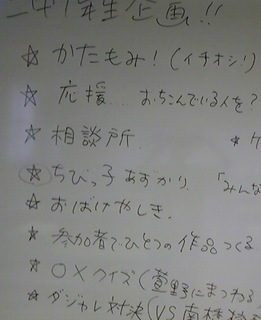 二中1年生企画!!
☆ かたもみ!(イチオシ!)
☆ 応援... おちこんでいる人を?
☆ 相談所.
☆ ちびっ子あずかり. 「みんな
☆ おばけやしき.
☆ 参加者でひとつの作品つくる
☆ ○×クイズ(萱野にまつわる
☆ ダジャレ対決(VS